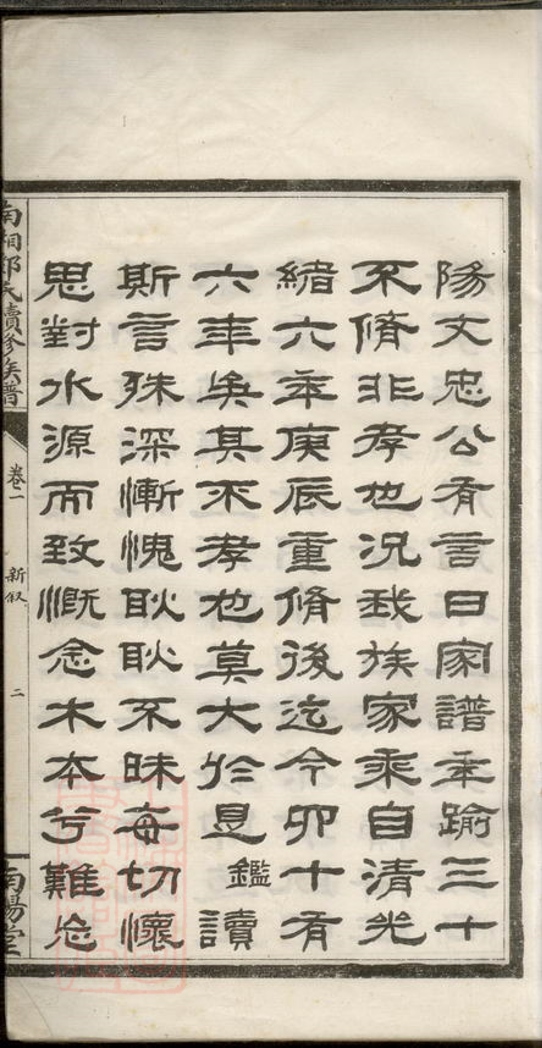 陽文忠公有言曰家譜年踰三十
不脩非孝也況我族家乘自清光
緒六年庚辰重脩後迄今卯十有
六年矣其不孝也莫大於是鑑讀
斯言殊深慚愧耿耿不昧每切懷
思對水源而致慨念木本兮難忘
南湘鄧氏續修族譜
卷二
新叙
二
南陽堂